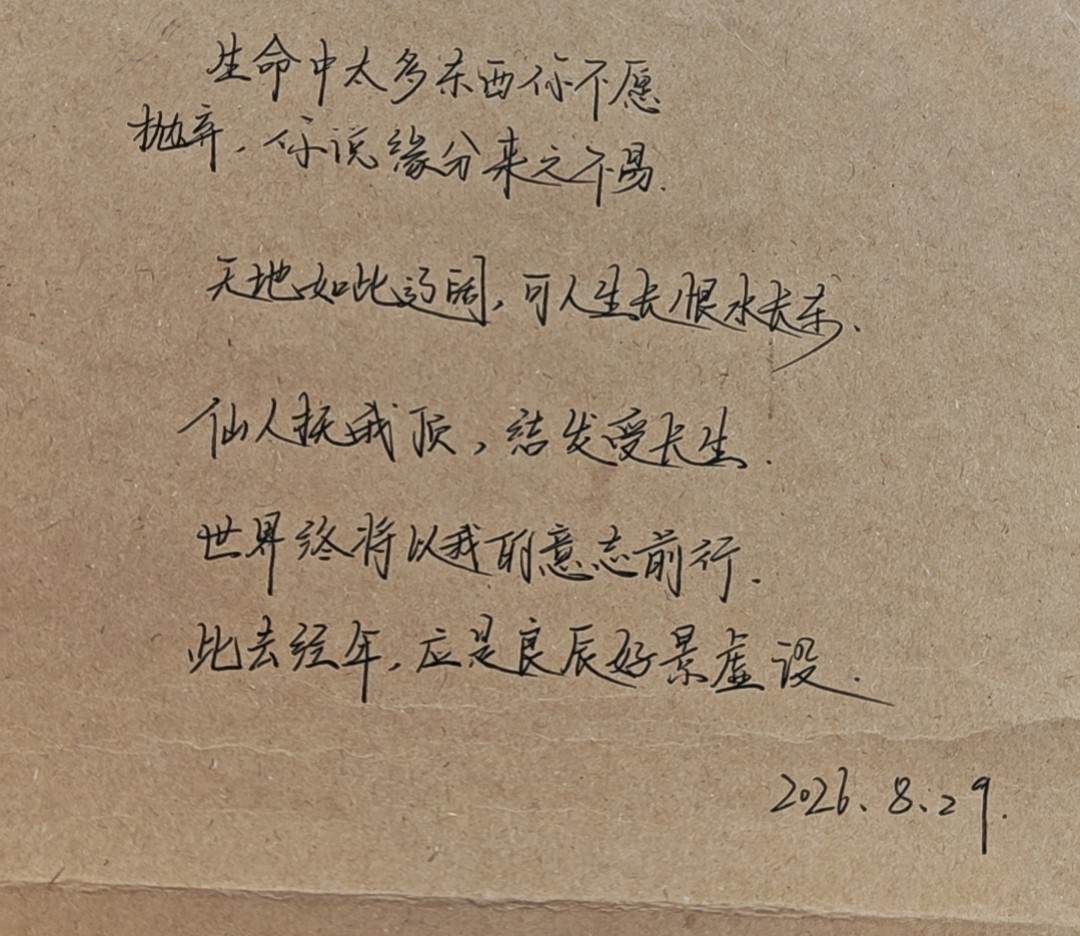 生命中太多东西你不愿
抛弃，你说缘分来之不易.
天地如此辽阔，可人生长恨水长东.
仙人抚我顶，结发受长生.
世界终将以我的意志前行.
此去经年，应是良辰好景虚设.
2026.8.29.